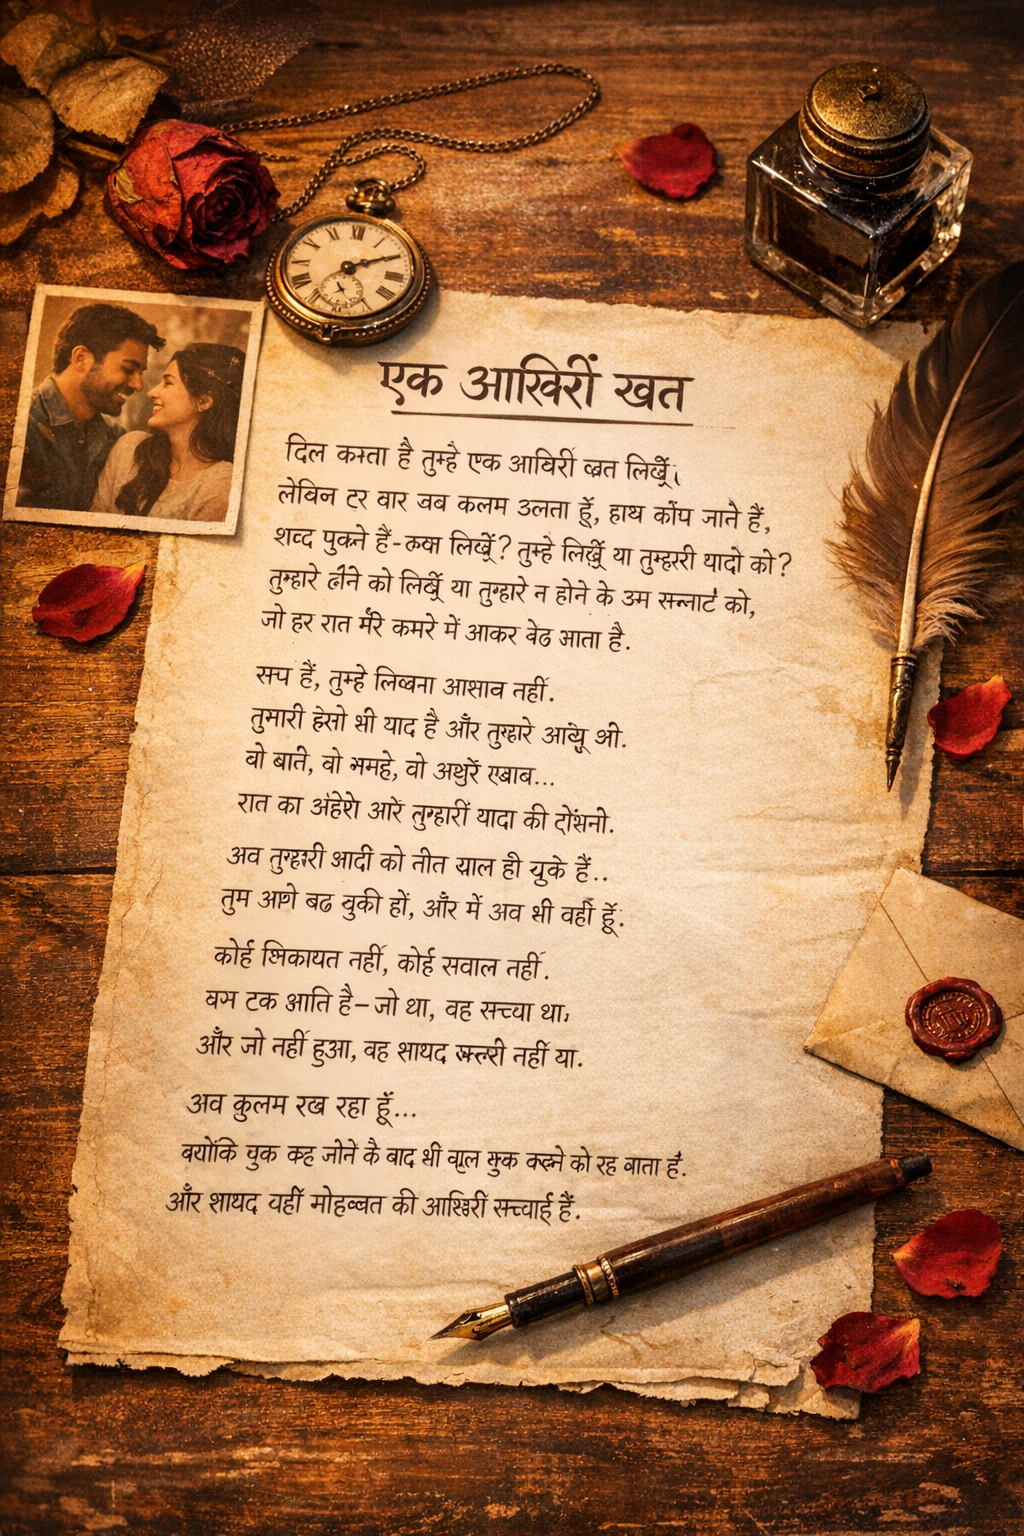 एक आखिरीं खत
दिल करता है तुम्हे एक आखिरीं खत लिखूँ
लेकिन टर बार जब कलम उलता हूँ, हाथ काँप जाते हैं,
शव्द पुकने हैं- लिखूँ? तुम्हे लिखूँ या तुम्हारी यादो को?
तुम्हारे को लिखूँ या तुम्हारे न होने के उम सन्नाटे को,
जो हर रात मेंरे कमरे में आकर वेठ जाता है.
सच हैं, तुम्हे लिखना आसाव नहीं.
तुमारी हंसी भी याद है और तुम्हारे भी.
वो बातें, वो वो अधुरें ख्वाब...
रात का तुम्हारीं यादा की
अव तुम्हारी को तीत ही चुके हैं..
तुम आगे बढ चुकी हों, और में अव भी वहीं हूँ.
कोई शिकायत नहीं, कोई सवाल नहीं.
टक आति है – जो था, वह सच्चा था,
और जो नहीं हुआ, वह शायद नहीं या.
अव कुलम रख रहा हूँ...
क्योंकि चुक कह जोने कै बाद भी कुक को रह जाता है.
और शायद यहीं मोहब्बत की आखिरी सच्चाई हैं.